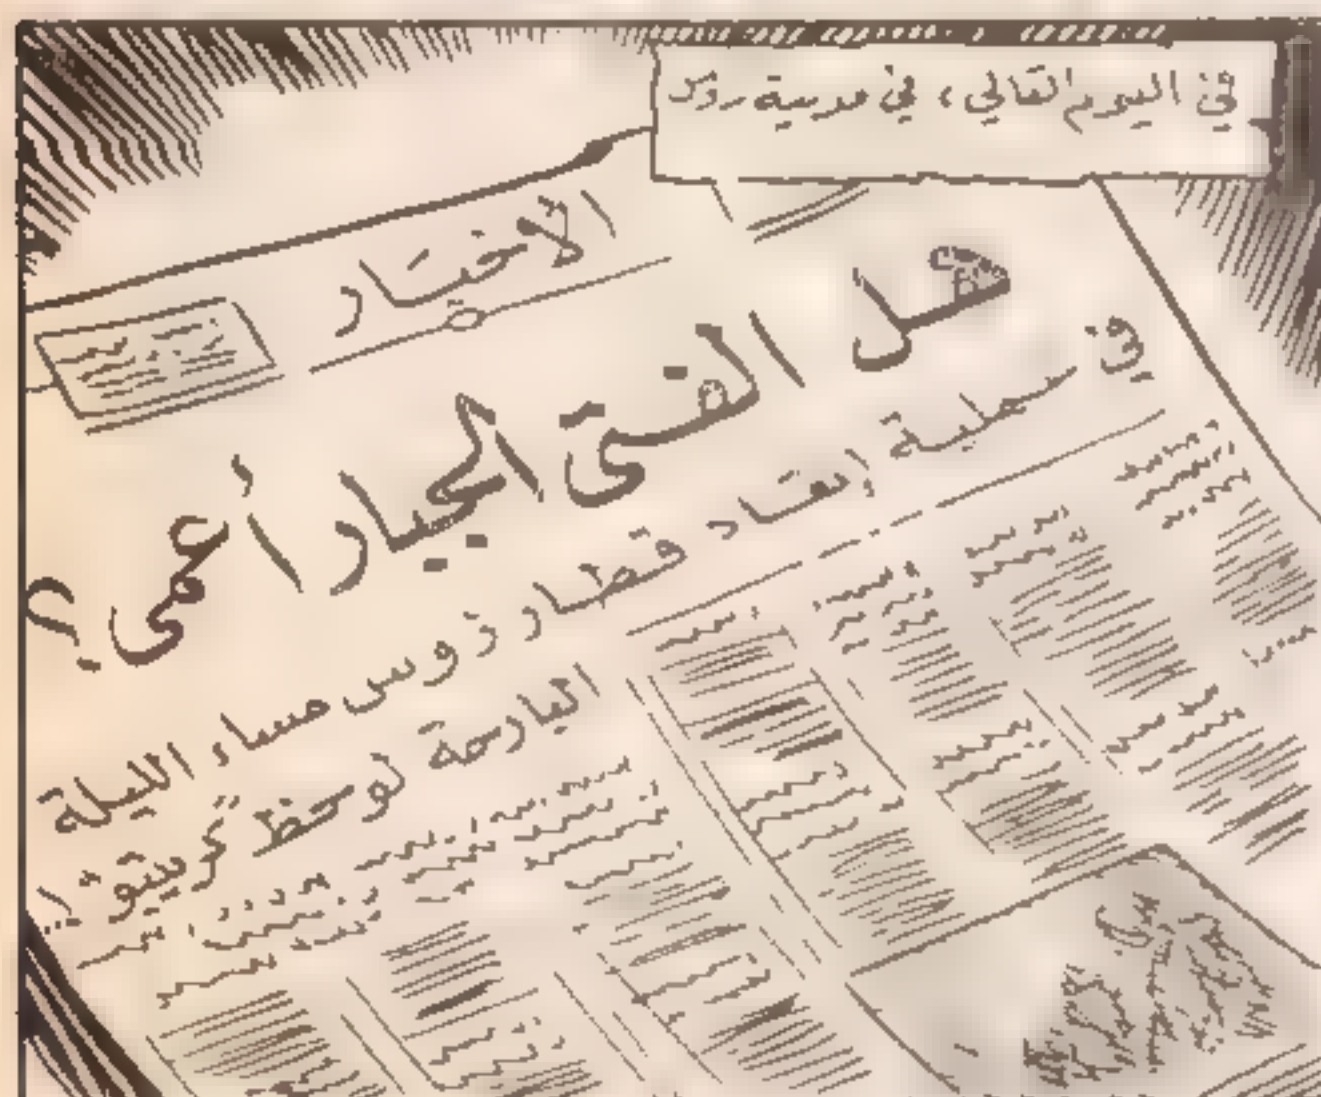 في اليوم التالي، في مدينة روس
الأخبار
هل الفتى الجبار أعمى؟
في عملية إنقاذ قطار زوس مساء الليلة
البارحة لوحظ كريبتو..!